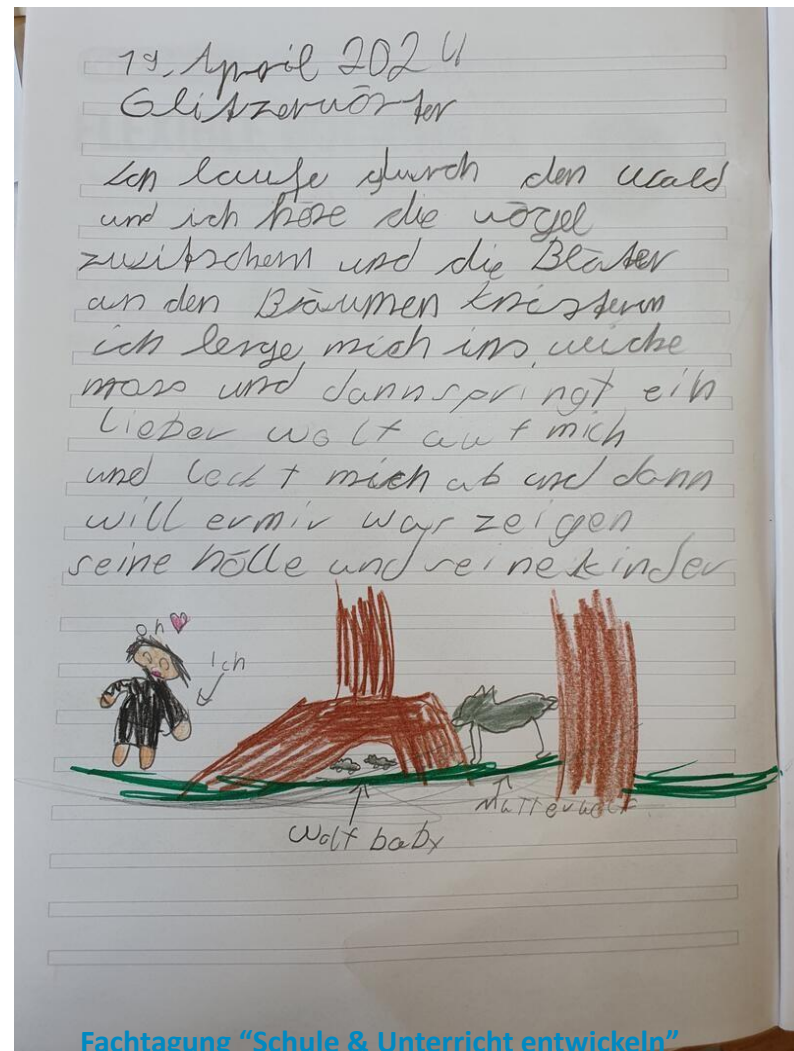 19. April 2024
Glitzerwörter
Ich laufe durch den wald
und ich höre die vögel
zwitschern und die Bläter
an den Bäumen knistern
ich lerge mich ins weiche
moss und dann springt ein
Lieber wolf auf mich
und leckt mich ab und dann
will er mir was zeigen
seine hölle und seine kinder
oh
Ich
Mutterwolf
Wolf baby
Fachtagung "Schule & Unterricht entwickeln"